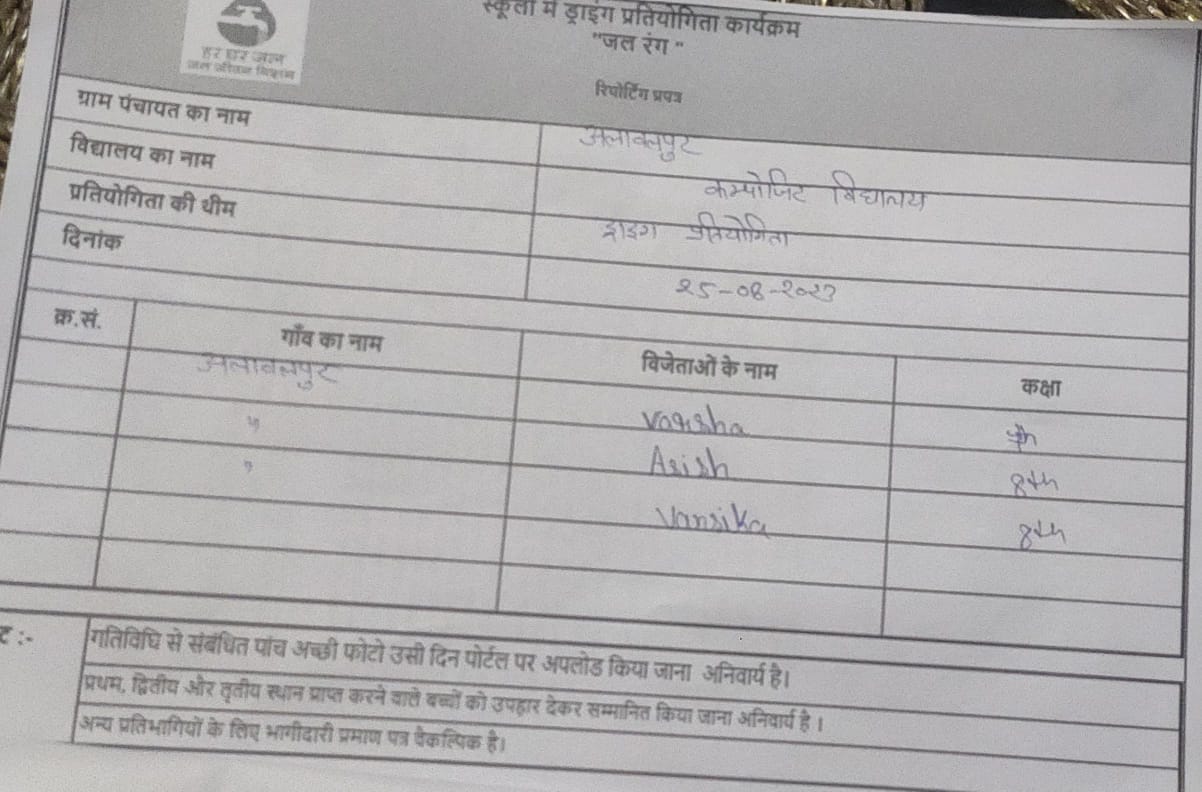 हर घर जल
जल जीवन मिशन
स्कूलों में ड्राइंग प्रतियोगिता कार्यक्रम
"जल रंग "
रिपोर्टिंग प्रपत्र
ग्राम पंचायत का नाम अलावलपुर
विद्यालय का नाम कम्पोजिट विद्यालय
प्रतियोगिता की थीम ड्राइग प्रतियोगिता
दिनांक 25-08-2023
क्र.सं. गाँव का नाम विजेताओं के नाम कक्षा
अलावलपुर Varsha
" Asish 8th
" Vansika 8th
ट :- गतिविधि से संबंधित पांच अच्छी फोटो उसी दिन पोर्टल पर अपलोड किया जाना अनिवार्य है।
प्रथम, द्वितीय और तृतीय स्थान प्राप्त करने वाले बच्चों को उपहार देकर सम्मानित किया जाना अनिवार्य है ।
अन्य प्रतिभागियों के लिए भागीदारी प्रमाण पत्र वैकल्पिक है।